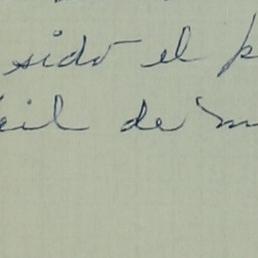 sido el p
cil de m